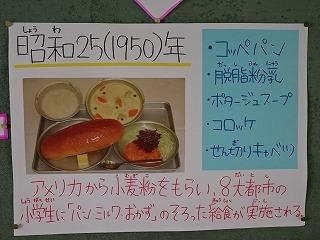 しょうわ
昭和25(1950)年
・コッペパン
だっしふんにゅう
・脱脂粉乳
・ポタージュスープ
・コロッケ
・せんぎりキャベツ
こむぎこ だいとし
アメリカから小麦粉をもらい、8大都市の
しょうがくせい きゅうしょく じっし
小学生に「パン・ミルク・おかず」のそろった給食が実施される。